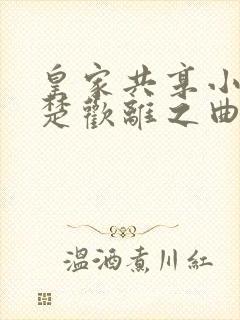 皇家共享小
楚歡離之曲
溫酒煮川紅